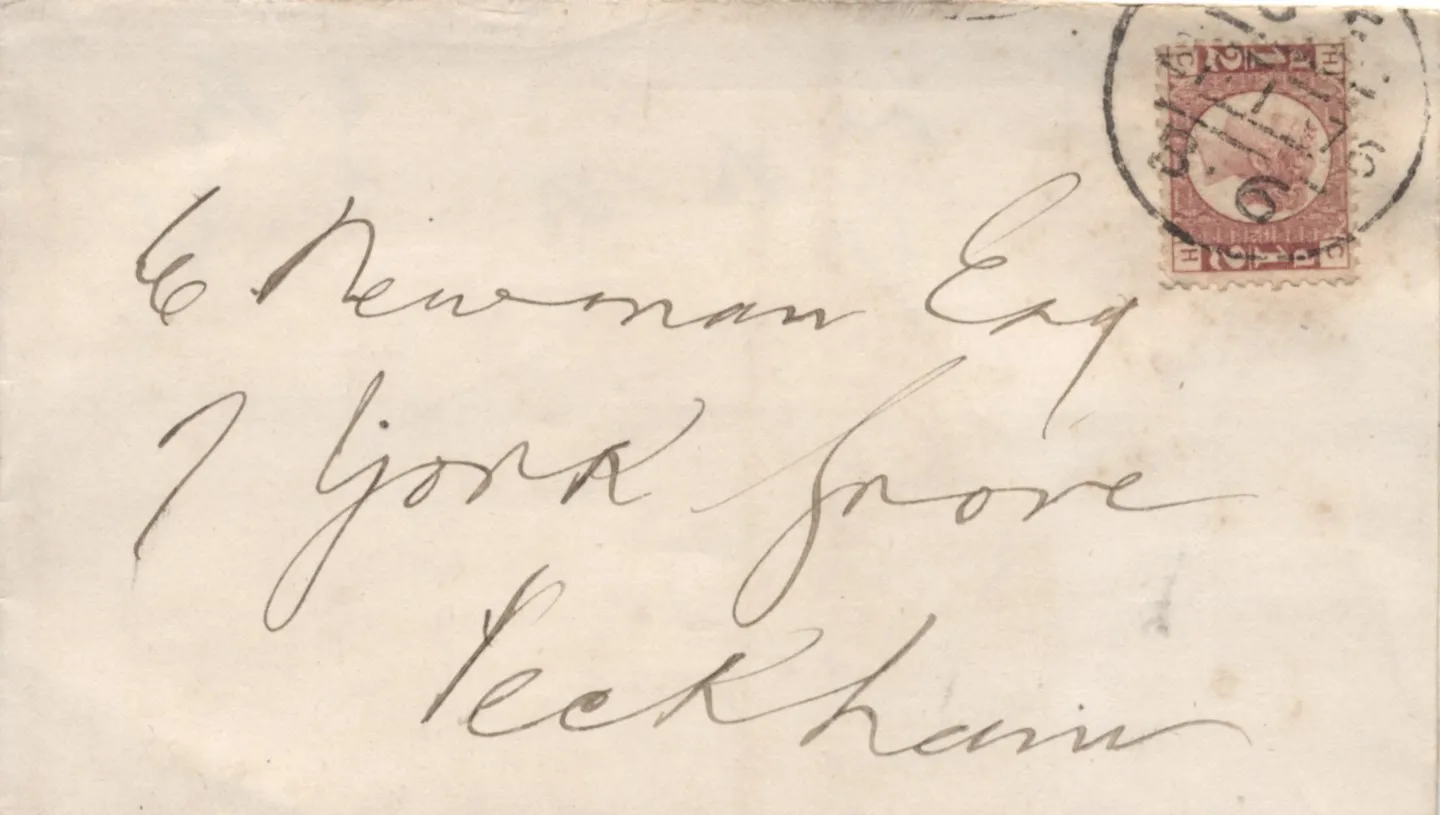 E Newman Esq
7 York Grove
Peckham